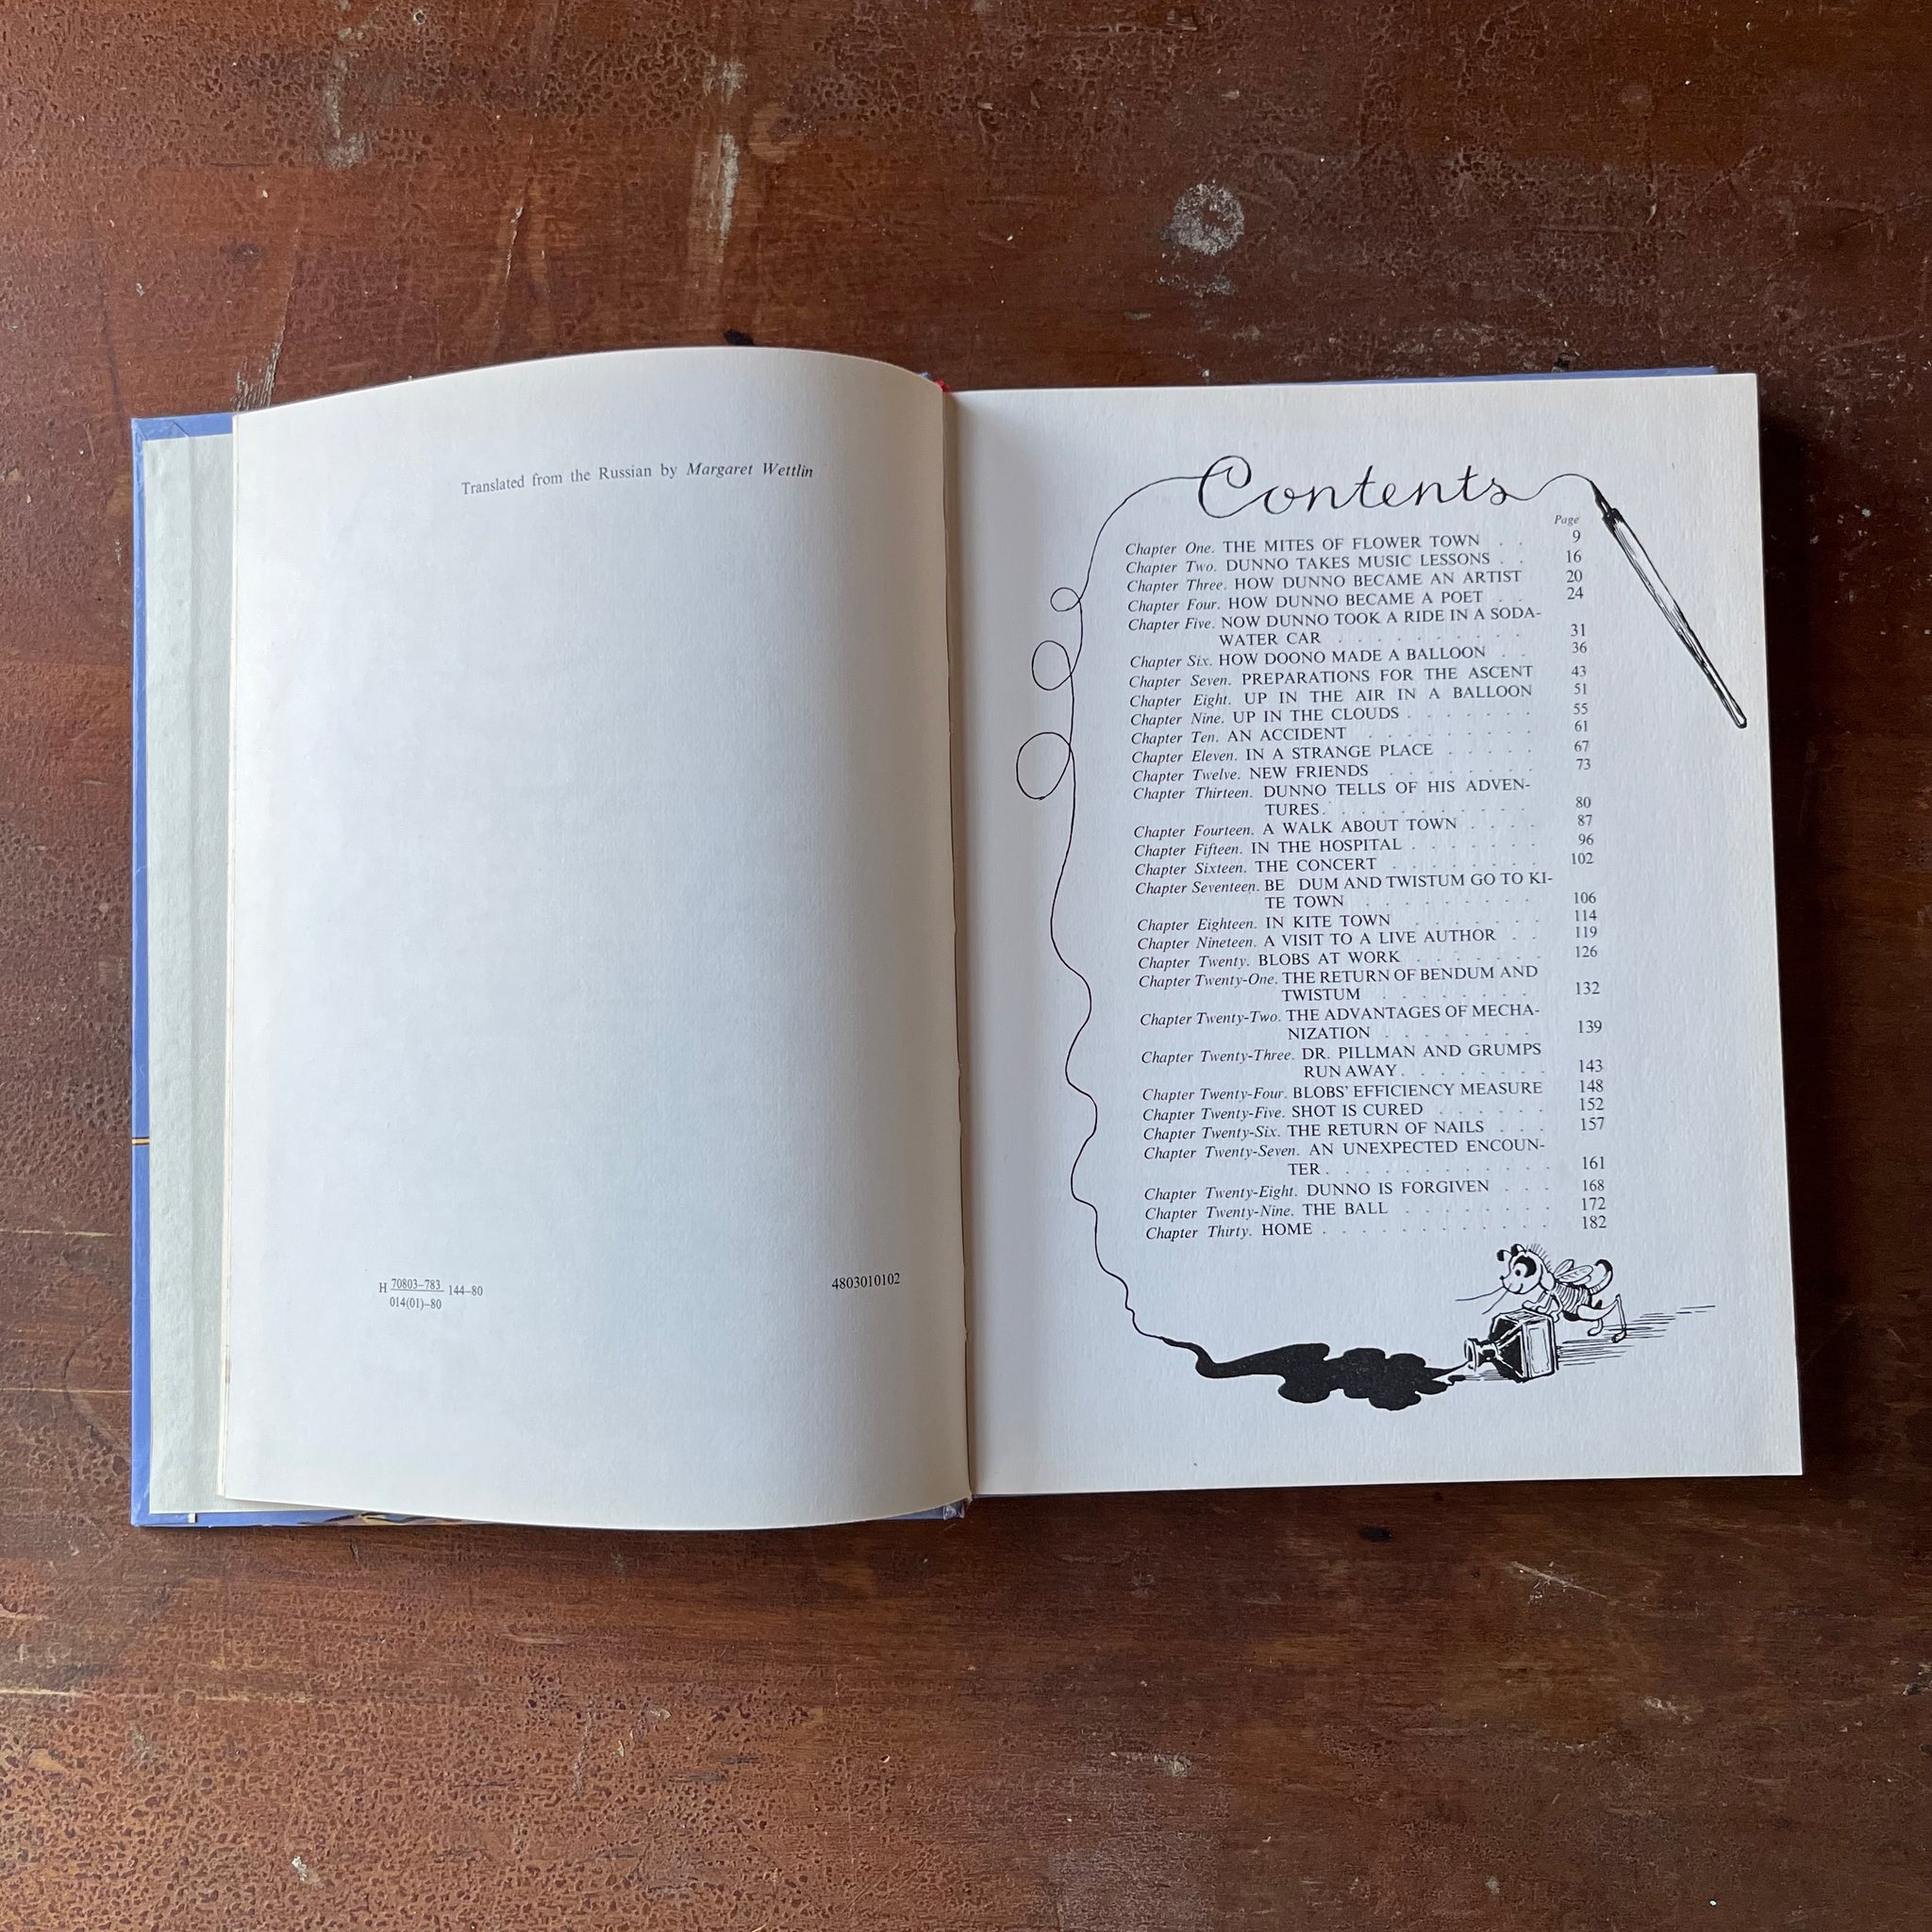 Translated from the Russian by Margaret Wettlin
H 70803–783 144–80
014(01)–80
4803010102
Contents
Page
Chapter One. THE MITES OF FLOWER TOWN . . 9
Chapter Two. DUNNO TAKES MUSIC LESSONS . . 16
Chapter Three. HOW DUNNO BECAME AN ARTIST 20
Chapter Four. HOW DUNNO BECAME A POET . . 24
Chapter Five. NOW DUNNO TOOK A RIDE IN A SODA-
WATER CAR . . . . . . . . . 31
Chapter Six. HOW DOONO MADE A BALLOON . . 36
Chapter Seven. PREPARATIONS FOR THE ASCENT 43
Chapter Eight. UP IN THE AIR IN A BALLOON 51
Chapter Nine. UP IN THE CLOUDS . . . . . . . 55
Chapter Ten. AN ACCIDENT . . . . . . . . . 61
Chapter Eleven. IN A STRANGE PLACE . . . . . 67
Chapter Twelve. NEW FRIENDS . . . . . . . . 73
Chapter Thirteen. DUNNO TELLS OF HIS ADVEN-
TURES . . . . . . . . . . . 80
Chapter Fourteen. A WALK ABOUT TOWN . . . . 87
Chapter Fifteen. IN THE HOSPITAL . . . . . . . 96
Chapter Sixteen. THE CONCERT . . . . . . . . 102
Chapter Seventeen. BE DUM AND TWISTUM GO TO KI-
TE TOWN . . . . . . . . . 106
Chapter Eighteen. IN KITE TOWN . . . . . . . 114
Chapter Nineteen. A VISIT TO A LIVE AUTHOR . . 119
Chapter Twenty. BLOBS AT WORK . . . . . . . 126
Chapter Twenty-One. THE RETURN OF BENDUM AND
TWISTUM . . . . . . . . 132
Chapter Twenty-Two. THE ADVANTAGES OF MECHA-
NIZATION . . . . . . . . 139
Chapter Twenty-Three. DR. PILLMAN AND GRUMPS
RUN AWAY . . . . . . . . 143
Chapter Twenty-Four. BLOBS' EFFICIENCY MEASURE 148
Chapter Twenty-Five. SHOT IS CURED . . . . . . 152
Chapter Twenty-Six. THE RETURN OF NAILS . . . 157
Chapter Twenty-Seven. AN UNEXPECTED ENCOUN-
TER . . . . . . . . . . . . 161
Chapter Twenty-Eight. DUNNO IS FORGIVEN . . . 168
Chapter Twenty-Nine. THE BALL . . . . . . . . 172
Chapter Thirty. HOME . . . . . . . . . . . . 182